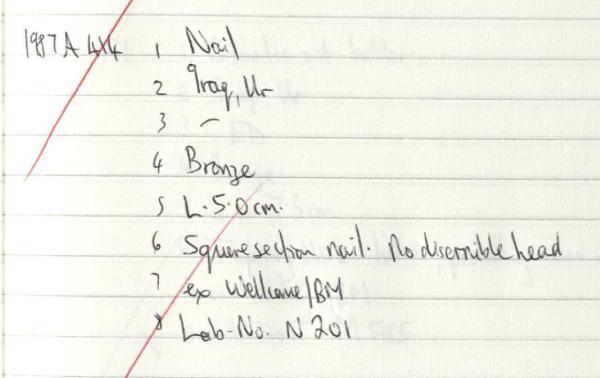 1987A 4X4 1 Nail
2 Iraq, Ur
3 –
4 Bronze
5 L. 5.0 cm.
6 Square section nail. No discernible head
7 ex Wellcome/BM
8 Lab-No. N 201